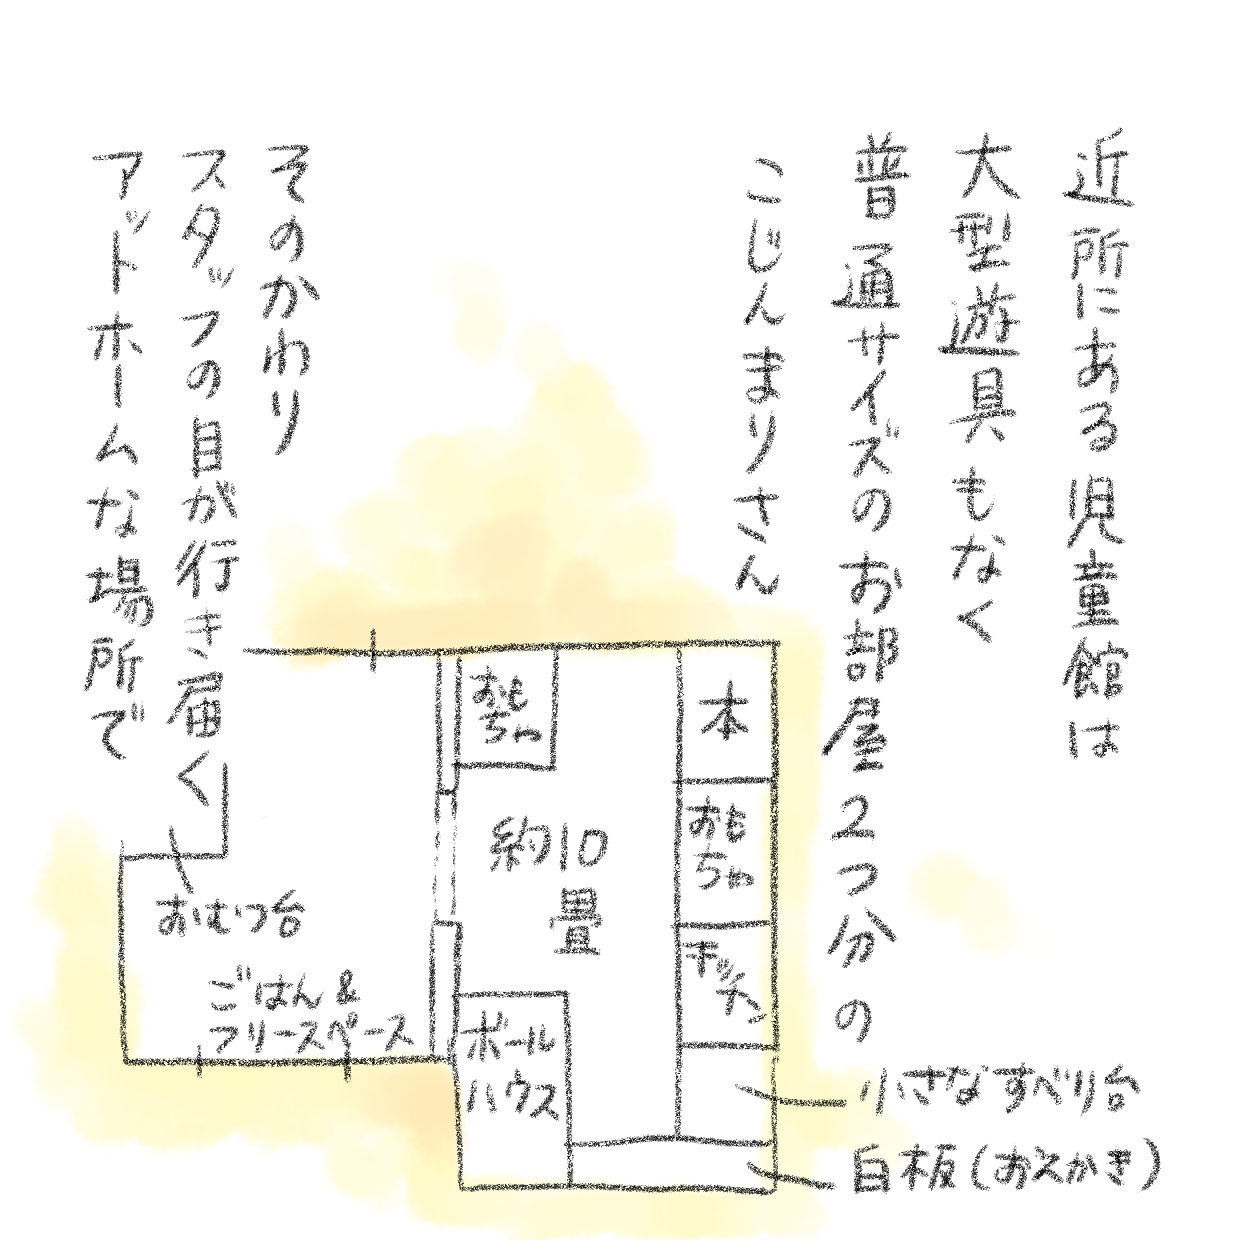 近所にある児童館は
大型遊具もなく
普通サイズのお部屋2つ分の
こじんまりさん
そのかわり
スタッフの目が行き届く
アットホームな場所で
おもちゃ
本
おもちゃ
約10畳
キッチン
おむつ台
ごはん&
フリースペース
ボール
ハウス
小さなすべり台
白板(おえかき)